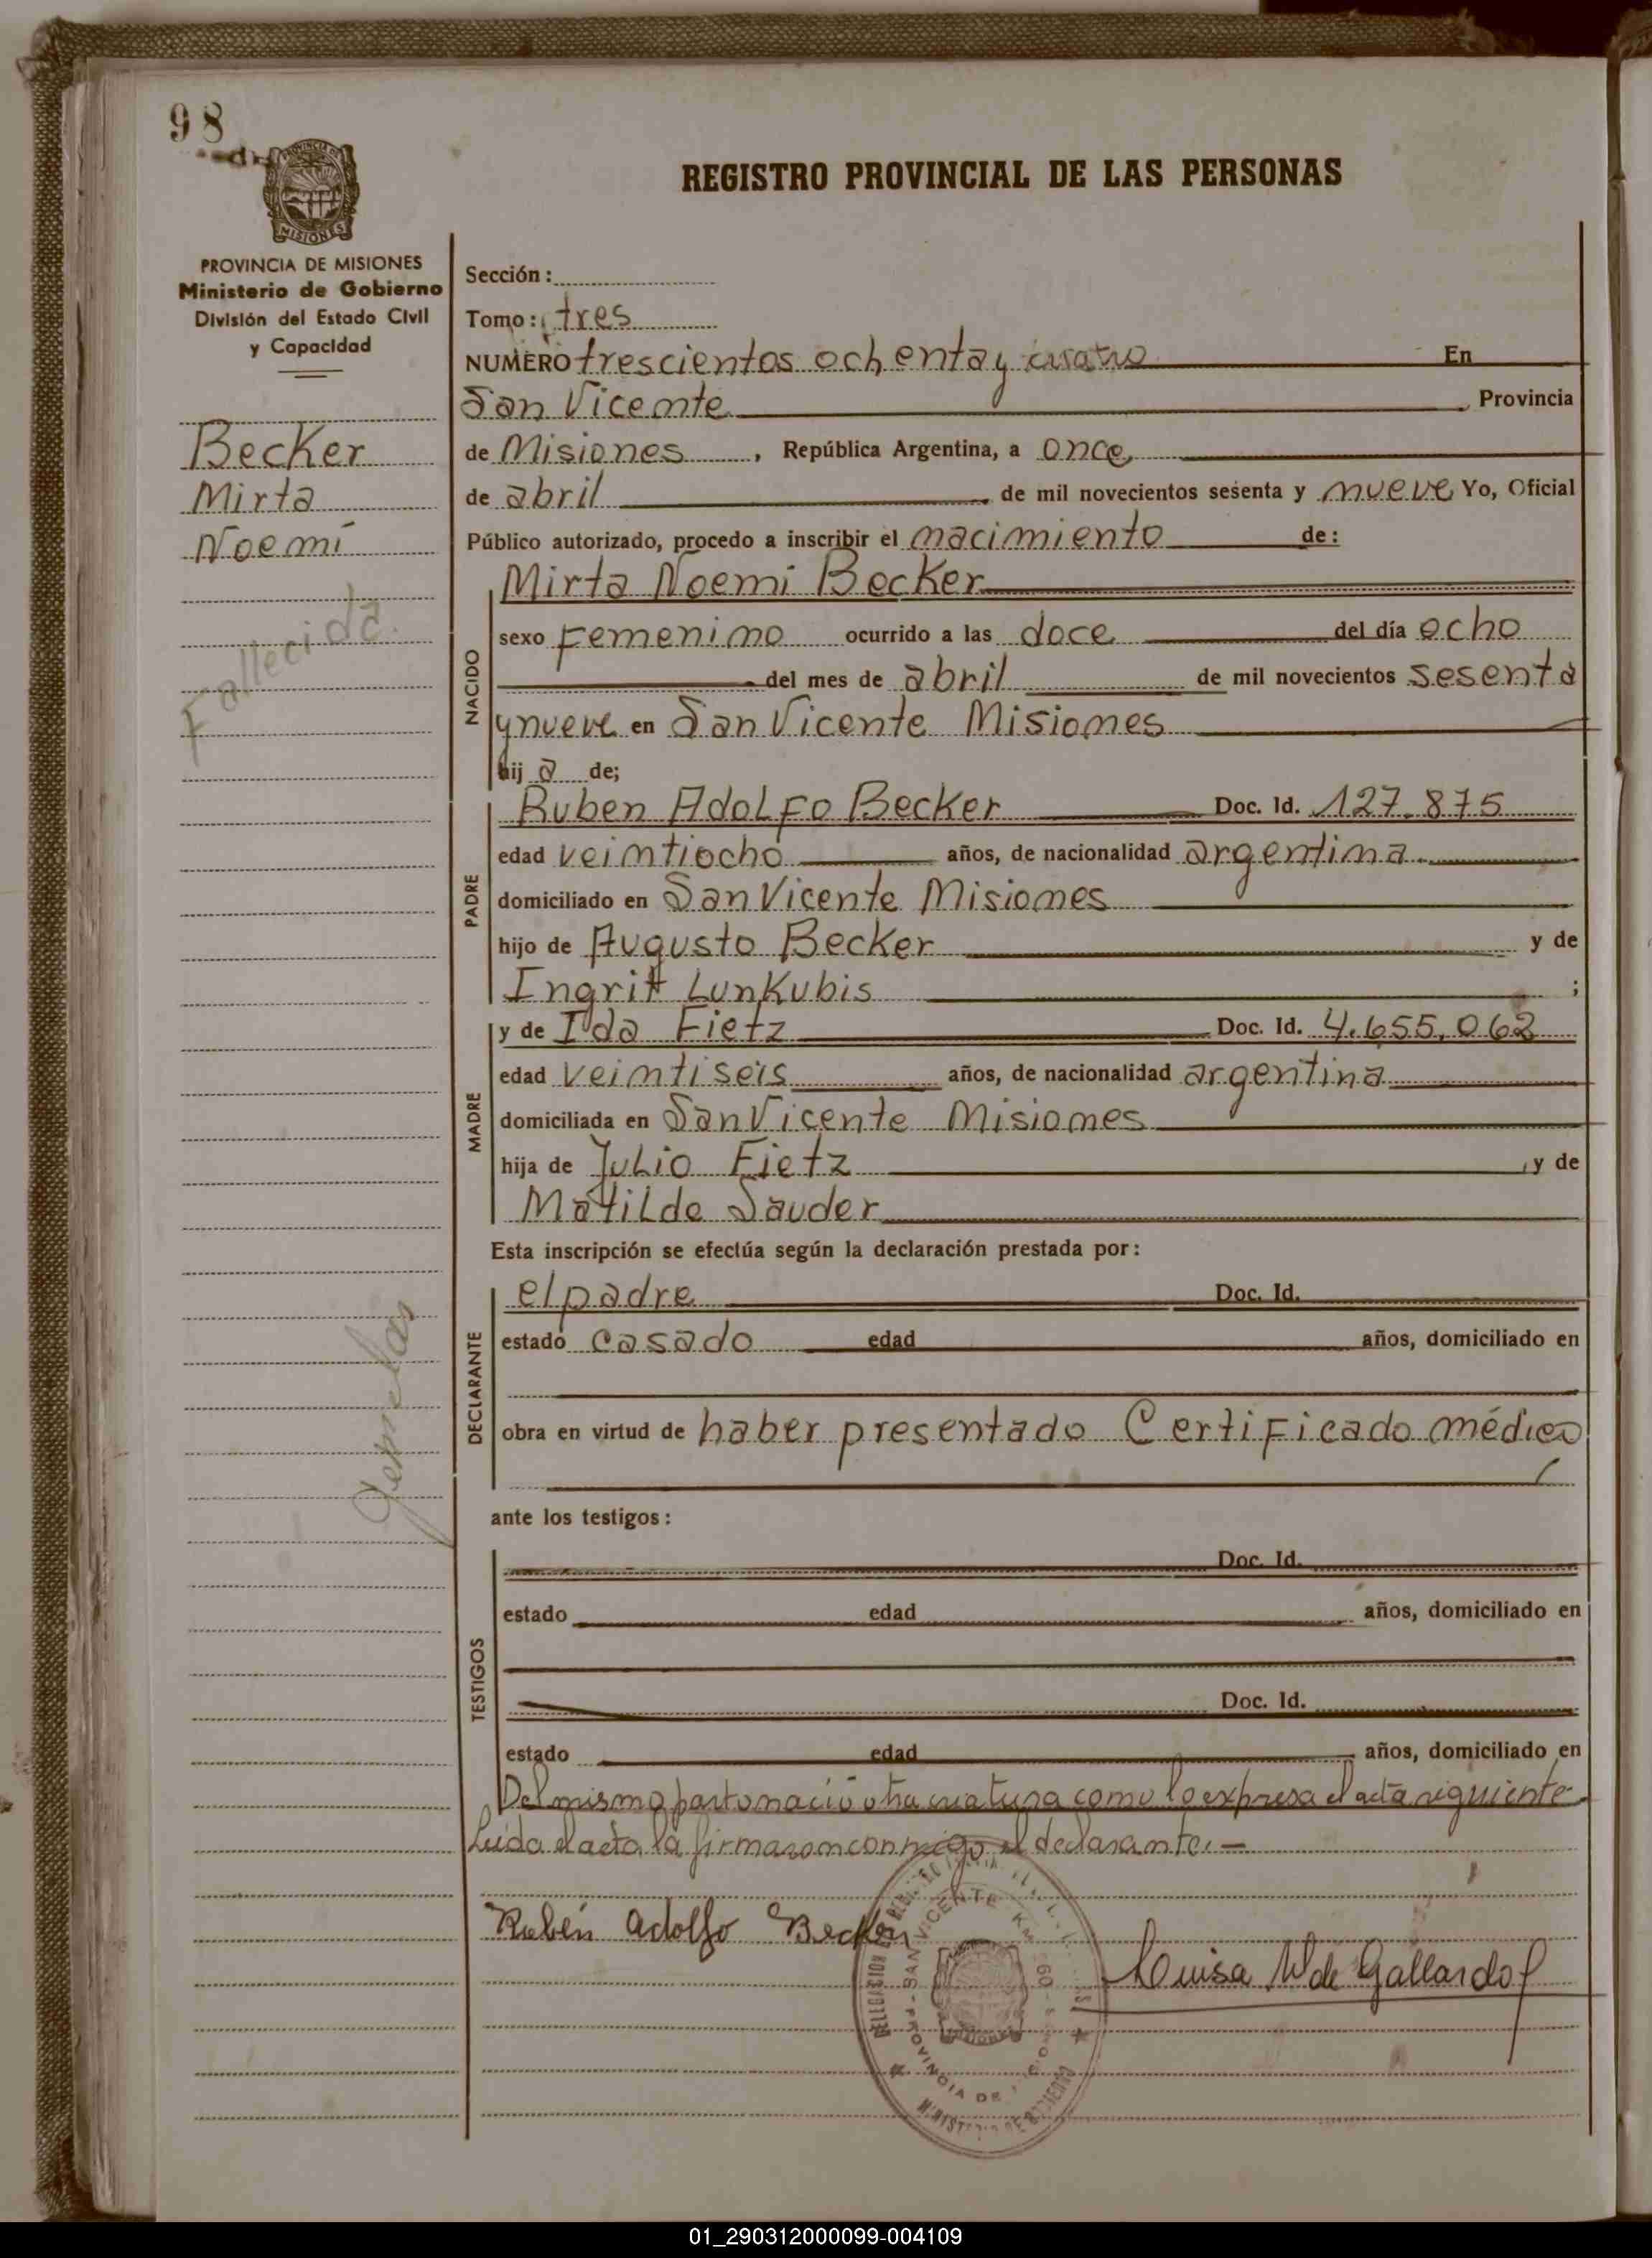 98
REGISTRO PROVINCIAL DE LAS PERSONAS
MISIONES
PROVINCIA DE MISIONES
Ministerio de Gobierno
División del Estado Civil
y Capacidad
Becker
Mirta
Noemí
Fallecida.
Gemelas
Sección:
Tomo: tres
NUMERO trescientos ochenta y cuatro En
San Vicente, Provincia
de Misiones, República Argentina, a once
de abril de mil novecientos sesenta y nueve Yo, Oficial
Público autorizado, procedo a inscribir el nacimiento de:
NACIDO
Mirta Noemí Becker
sexo Femenino ocurrido a las doce del día ocho
del mes de abril de mil novecientos sesenta
y nueve en San Vicente Misiones
hija de;
PADRE
Ruben Adolfo Becker Doc. Id. 127.875
edad veintiocho años, de nacionalidad argentina
domiciliado en San Vicente Misiones
hijo de Augusto Becker y de
Ingrit Lunkubis ;
MADRE
y de Ida Fietz Doc. Id. 4.655.062
edad veintiseis años, de nacionalidad argentina
domiciliada en San Vicente Misiones
hija de Julio Fietz, y de
Matilde Sauder
Esta inscripción se efectúa según la declaración prestada por:
DECLARANTE
el padre Doc. Id.
estado casado edad años, domiciliado en
obra en virtud de haber presentado Certificado médico
ante los testigos:
TESTIGOS
Doc. Id.
estado edad años, domiciliado en
Doc. Id.
estado edad años, domiciliado en
Del mismo parto nació otra criatura como lo expresa el acta siguiente
Leida el acta la firmaron conmigo el declarante.—
Rubén Adolfo Becker
Luisa W de Gallardo
SAN VICENTE
PROVINCIA DE
MINISTERIO DE GOBIERNO
01_290312000099-004109